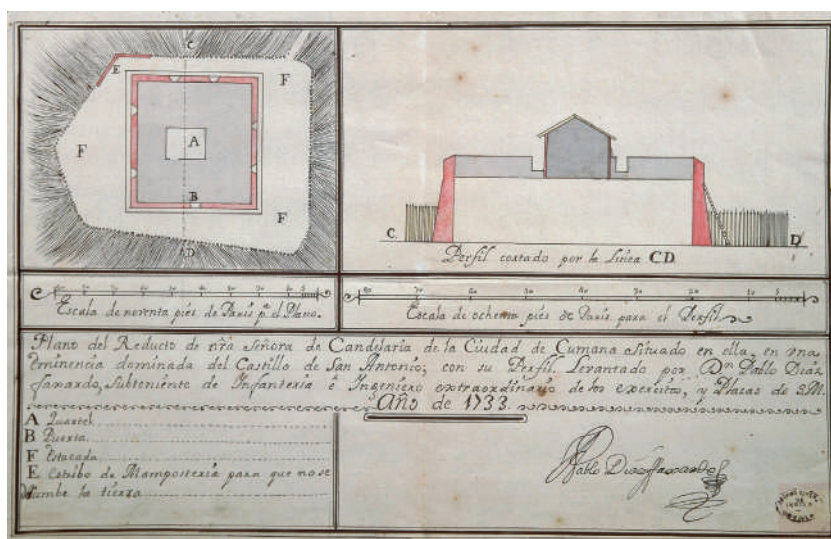 C
E
F
A
F
B
F
D
C.
D
Perfil cortado por la Linea CD
Escala de noventa pies de Paris pª el Plano.
80 70 60 50 40 30 20 10 5
Escala de ochenta pies de Paris para el Perfil
Plano del Reducto de nrã Señora de Candelaria de la Ciudad de Cumana situado en ella, en una
eminencia dominada del Castillo de San Antonio; con su Perfil. Levantado por Dn Pablo Diaz
faxardo, Subteniente de Infanteria è Ingeniero extraordinario de los exercitos, y Plazas de S.M.
Año de 1733.
A Quartel
B Puerta
F Estacada
E Estribo de Mamposteria para que no se
derumbe la tierra
Pablo Diaz faxardo